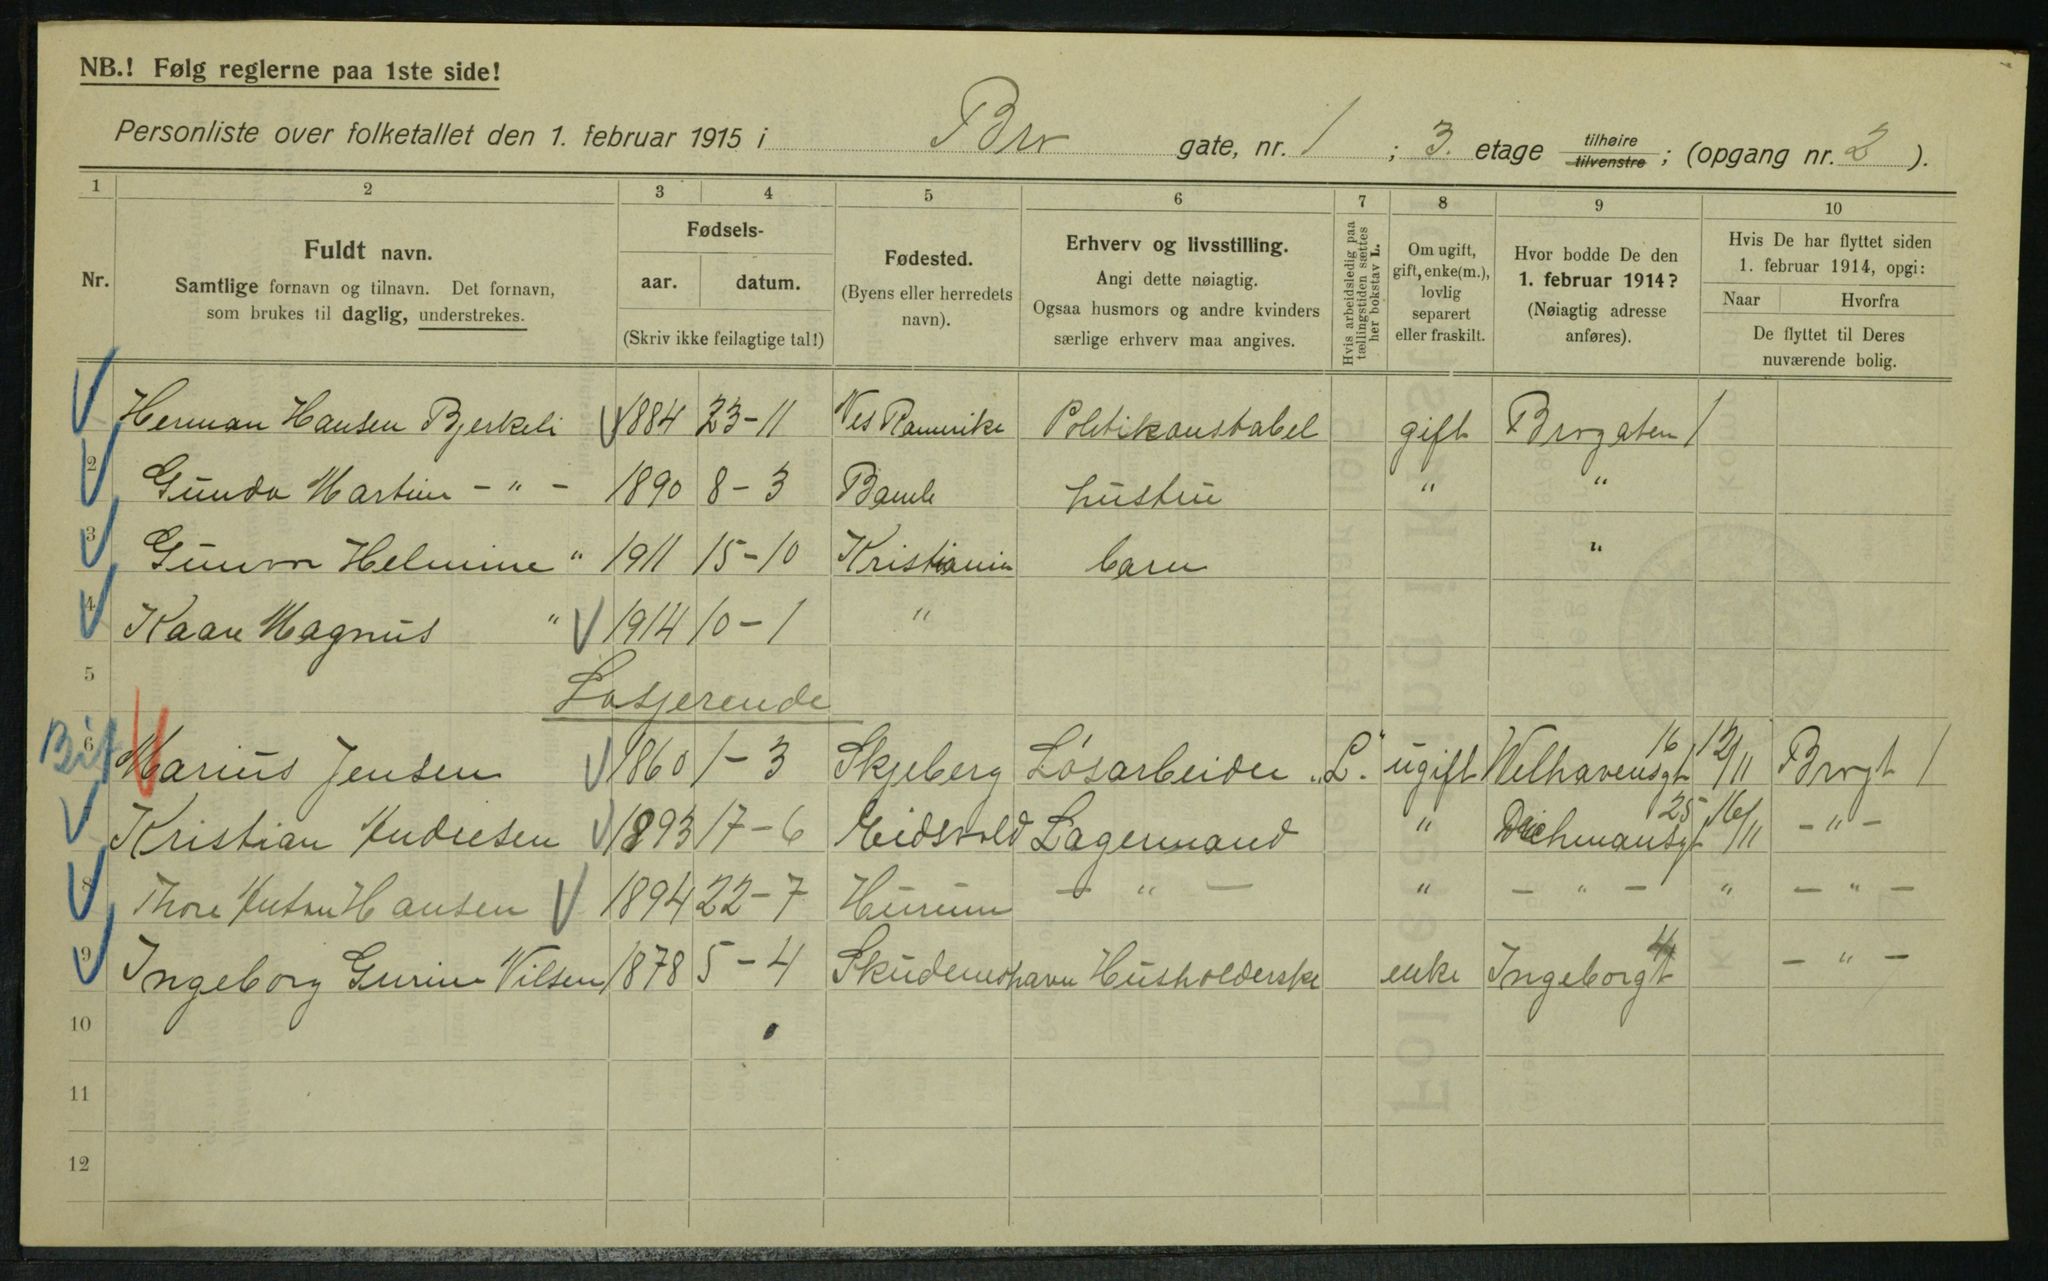 NB.! Følg reglerne paa 1ste side!
Personliste over folketallet den 1. februar 1915 i Bro gate, nr. 1 ; 3. etage tilhøire tilvenstre ; (opgang nr. 2 ).
1 2 3 4 5 6 7 8 9 10
Nr.
Fuldt navn.
Samtlige fornavn og tilnavn. Det fornavn,
som brukes til daglig, understrekes.
Fødsels-
aar. datum.
(Skriv ikke feilagtige tal!)
Fødested.
(Byens eller herredets
navn).
Erhverv og livsstilling.
Angi dette nøiagtig.
Ogsaa husmors og andre kvinders
særlige erhverv maa angives.
Hvis arbeidsledig paa
tællingstiden sættes
her bokstav L.
Om ugift,
gift, enke(m.),
lovlig
separert
eller fraskilt.
Hvor bodde De den
1. februar 1914?
(Nøiagtig adresse
anføres).
Hvis De har flyttet siden
1. februar 1914, opgi:
Naar Hvorfra
De flyttet til Deres
nuværende bolig.
Herman Hansen Bjerkeli 1884 23-11 Nes Romerike Politikonstabel gift Brogaten 1
2 Gunda Martine - " - 1890 8-3 Bamle hustru " "
3 Gunvor Helmine " 1911 15-10 Kristiania barn "
4 Kaare Magnus " 1914 10-1 "
5 Losjerende
6 Marius Jensen 1860 1-3 Skjeberg Løsarbeider "L." ugift Welhavensgt 16 12/11 Brogt 1
Kristian Andresen 1893 17-6 Eidsvold Lagermand " Deichmansgt 25 16/11 - " -
8 Thore Anton Hansen 1894 22-7 Hurum - " - " - " - " - " -
9 Ingeborg Gurine Nilsen 1878 5-4 Skudeneshavn Husholderske enke Ingeborgt 4 - " -
10
11
12